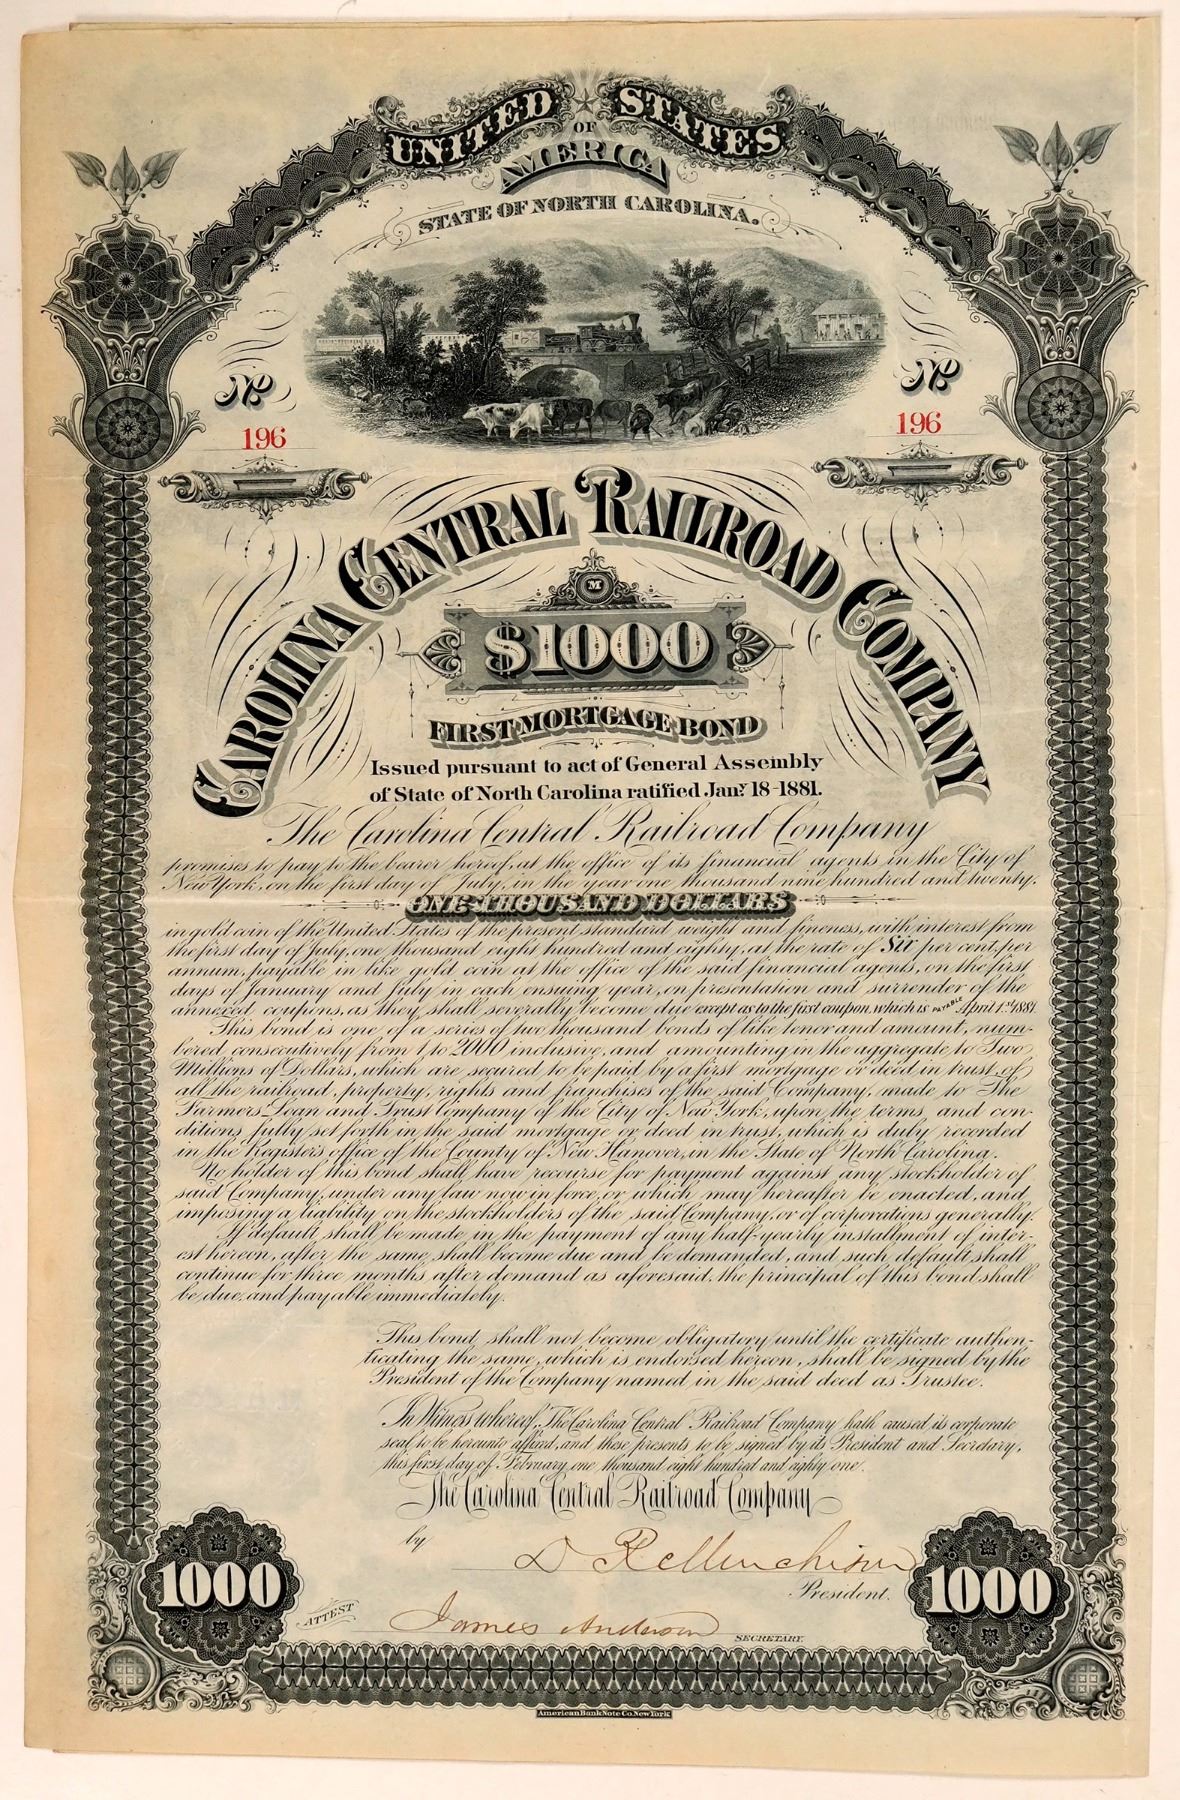 UNITED STATES
OF
AMERICA
STATE OF NORTH CAROLINA.
No No
196 196
CAROLINA CENTRAL RAILROAD COMPANY
M
$1000
FIRST MORTGAGE BOND
Issued pursuant to act of General Assembly
of State of North Carolina ratified Jany. 18-1881.
The Carolina Central Railroad Company
promises to pay to the bearer hereof, at the office of its financial agents in the City of
New York, on the first day of July, in the year one thousand nine hundred and twenty.
ONE THOUSAND DOLLARS
in gold coin of the United States of the present standard weight and fineness, with interest from
the first day of July, one thousand eight hundred and eighty, at the rate of Six per cent, per
annum, payable in like gold coin at the office of the said financial agents, on the first
days of January and July in each ensuing year, on presentation and surrender of the
annexed coupons, as they shall severally become due except as to the first coupon which is PAYABLE April 1st 1881.
This bond is one of a series of two thousand bonds of like tenor and amount, num-
bered consecutively from 1, to 2000 inclusive, and amounting in the aggregate to Two
Millions of Dollars, which are secured to be paid by a first mortgage or deed in trust of
all the railroad, property, rights and franchises of the said Company, made to The
Farmers Loan and Trust Company of the City of New York, upon the terms and con-
ditions fully set forth in the said mortgage or deed in trust, which is duly recorded
in the Registers office of the County of New Hanover, in the State of North Carolina.
No holder of this bond shall have recourse for payment against any stockholder of
said Company, under any law now in force, or which may hereafter be enacted, and
imposing a liability on the stockholders of the said Company, or of corporations generally.
If default shall be made in the payment of any half-yearly installment of inter-
est hereon, after the same shall become due and be demanded, and such default shall
continue for three months after demand as aforesaid, the principal of this bond shall
be due, and payable immediately.
This bond shall not become obligatory until the certificate authen-
ticating the same, which is endorsed hereon, shall be signed by the
President of the Company named in the said deed as Trustee.
In Witness whereof, The Carolina Central Railroad Company hath caused its corporate
seal to be hereunto affixed, and these presents to be signed by its President and Secretary,
this first day of February one thousand eight hundred and eighty one.
The Carolina Central Railroad Company
by D R Murchison
President.
1000 1000
ATTEST James Anderson SECRETARY.
American Bank Note Co. New York